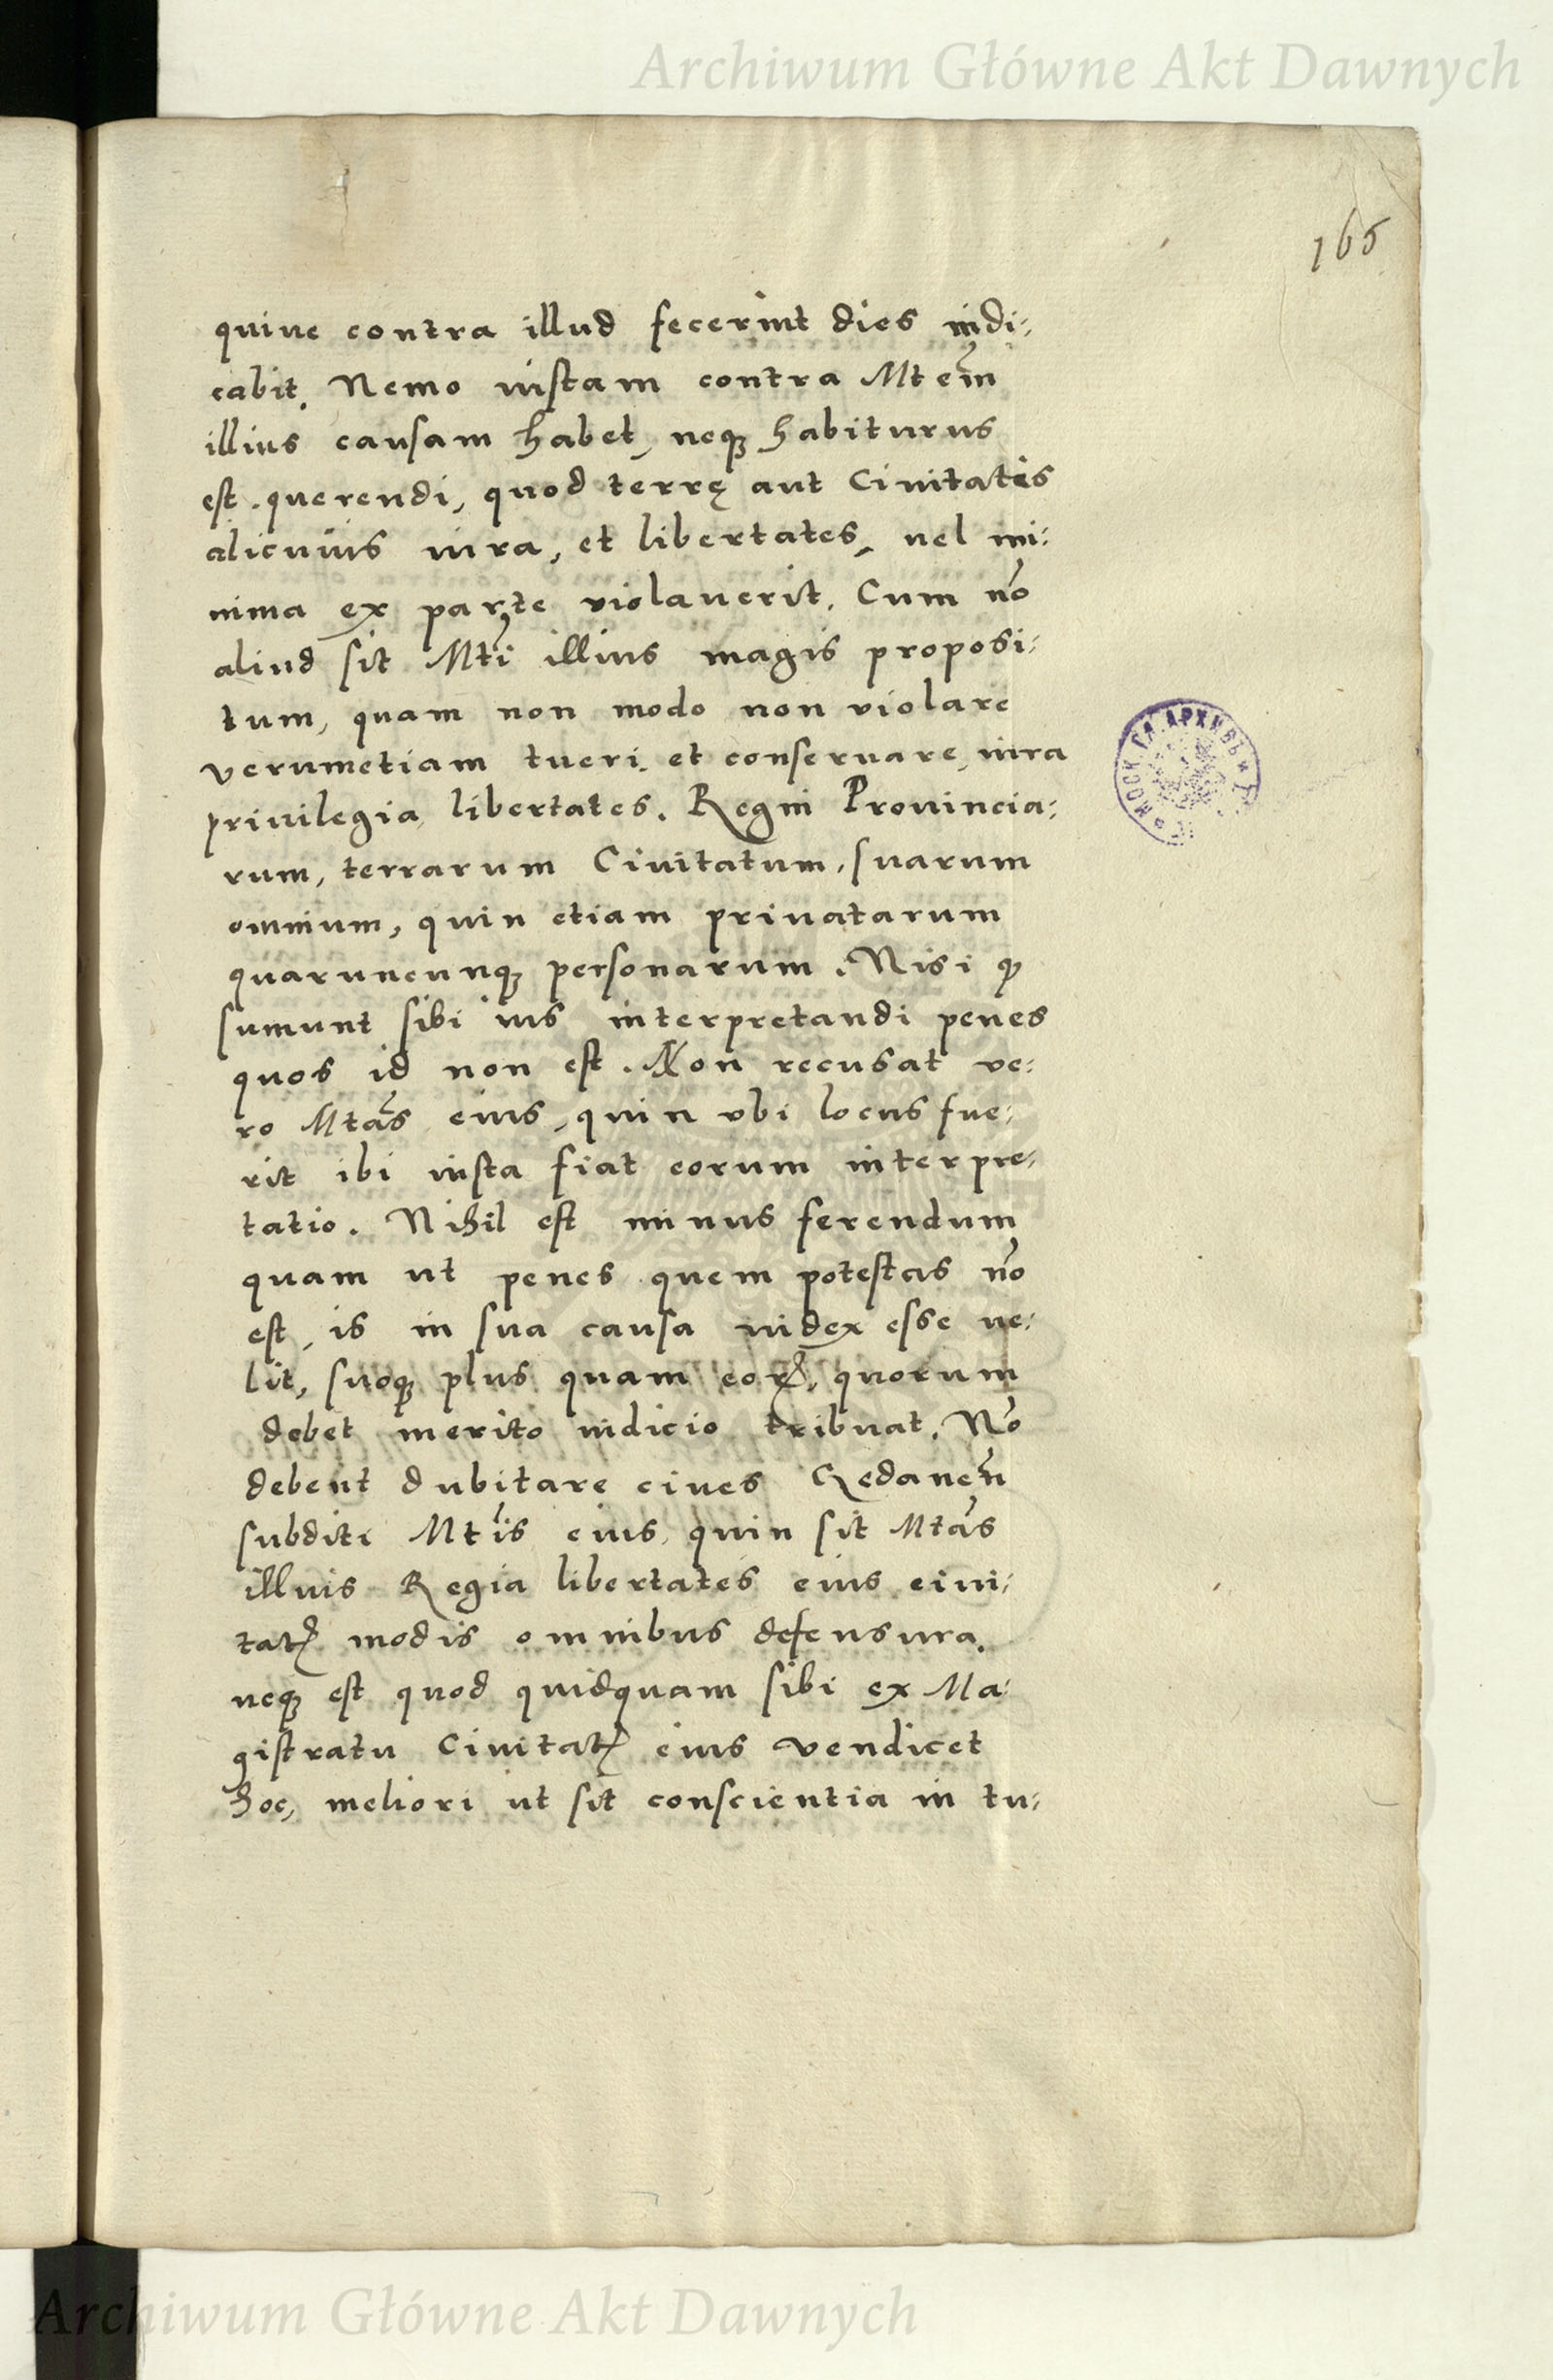 Archiwum Główne Akt Dawnych
165
quiue contra illud fecerint dies indi:
cabit. Nemo iustam contra Mtem̃
illius causam habet, neqȝ habiturus
est querendi, quod terrę aut Ciuitatis
alicuius iura, et libertates, uel mi:
nima ex parte violauerit. Cum nõ
aliud sit Mtĩ illius magis proposi:
tum, quam non modo non violare
verumetiam tueri et conseruare iura
priuilegia libertates. Regni Prouincia:
rum, terrarum Ciuitatum, suarum
omnium, quin etiam priuatarum
quarumcunqȝ personarum. Nisi qȝ
sumunt sibi ius interpretandi penes
quos id non est. Non recusat ve:
ro Mtãs eius, quin vbi locus fue:
rit ibi iusta fiat eorum interpre:
tatio. Nihil est minus ferendum
quam ut penes quem potestas nõ
est, is in sua causa iudex esse ue:
lit, suoqȝ plus quam eorꝝ, quorum
debet merito iudicio tribuat. Nõ
debent dubitare ciues Gedaneñ
subditi Mtĩs eius quin sit Mtãs
illius Regia libertates eius ciui:
tatꝭ modis omnibus defensura.
neqȝ est quod quidquam sibi ex Ma:
gistratu Ciuitatꝭ eius vendicet
hoc, meliori ut sit conscientia in tu:
МОСК. ГЛ. АРХИВЪ
Archiwum Główne Akt Dawnych